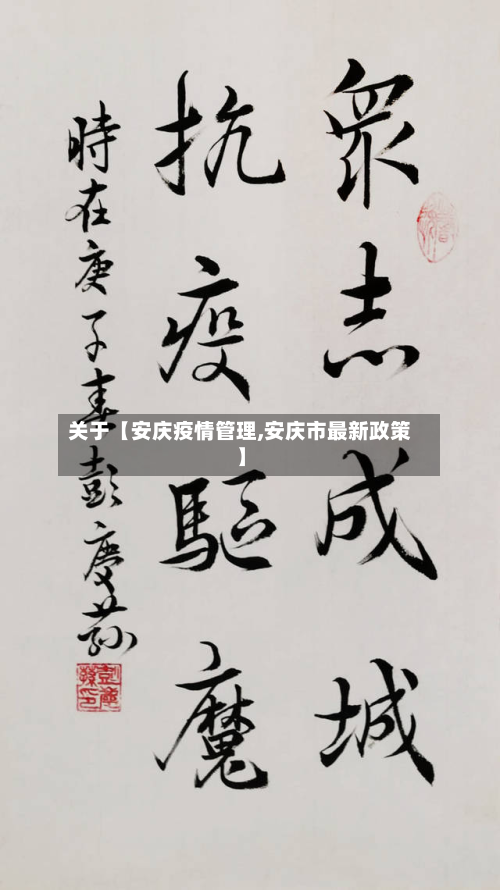 眾志成城
抗疫驅魔
時在庚子春彭慶蓀
关于【安庆疫情管理,安庆市最新政策
】